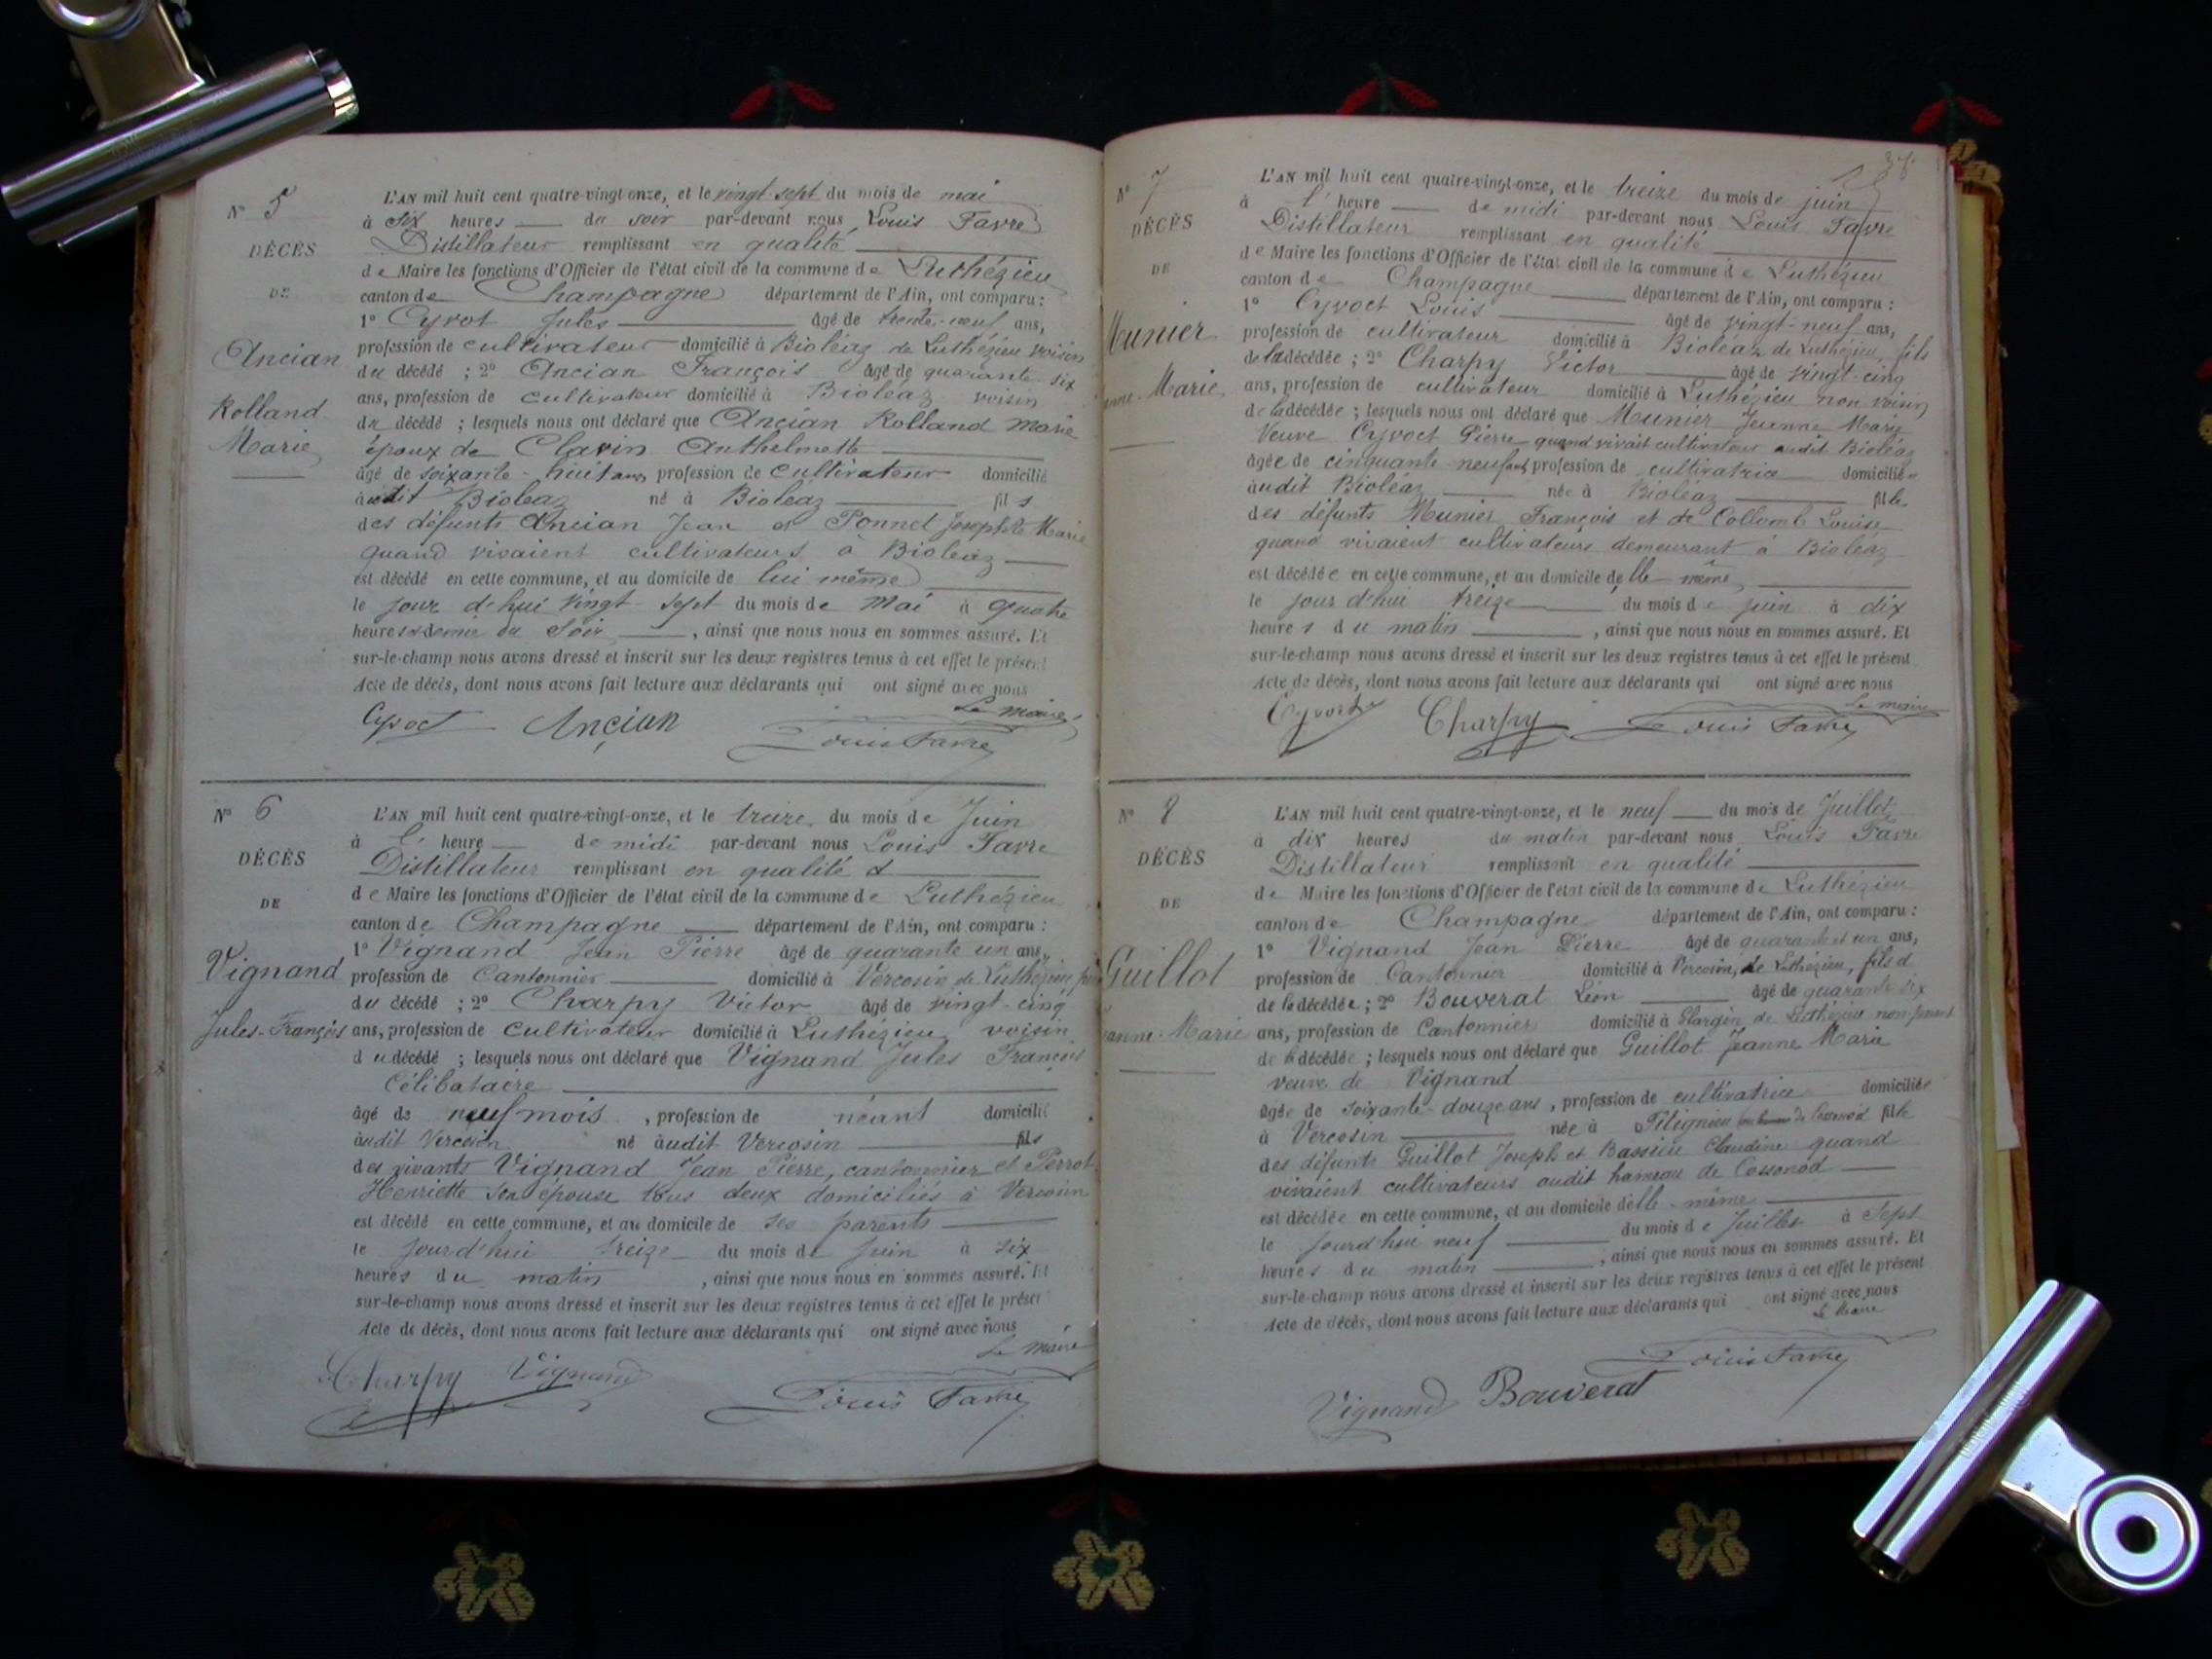 N° 5
DÉCÈS
DE
Ancian
Rolland
Marie
L'AN mil huit cent quatre-vingt-onze, et le vingt-sept du mois de mai
à six heures du soir par-devant nous Louis Favre
Distillateur remplissant en qualité
de Maire les fonctions d'Officier de l'état civil de la commune de Luthézieu
canton de Champagne département de l'Ain, ont comparu :
1° Cyvot Jules âgé de trente-neuf ans,
profession de cultivateur domicilié à Bioléaz de Luthézieu voisin
du décédé ; 2° Ancian François âgé de quarante-six
ans, profession de cultivateur domicilié à Bioléaz voisin
du décédé ; lesquels nous ont déclaré que Ancian Rolland Marie
époux de Clavin Anthelmette
âgé de soixante-huit ans, profession de cultivateur domicilié
audit Bioleaz né à Bioleaz fils
des défunts Ancian Jean et Ponnet Josephte Marie
quand vivaient cultivateurs à Bioleaz
est décédé en cette commune, et au domicile de lui même
le jour dehui vingt-sept du mois de Mai à quatre
heures et demie du Soir, ainsi que nous nous en sommes assuré. Et
sur-le-champ nous avons dressé et inscrit sur les deux registres tenus à cet effet le présent
Acte de décès, dont nous avons fait lecture aux déclarants qui ont signé avec nous
Le maire
Cyvoct Ancian Louis Favre
N° 6
DÉCÈS
DE
Vignand
Jules-François
L'AN mil huit cent quatre-vingt-onze, et le treize du mois de Juin
à l' heure de midi par-devant nous Louis Favre
Distillateur remplissant en qualité d
de Maire les fonctions d'Officier de l'état civil de la commune de Luthézieu
canton de Champagne département de l'Ain, ont comparu :
1° Vignand Jean Pierre âgé de quarante un ans,
profession de Cantonnier domicilié à Vercosin de Luthézieu
du décédé ; 2° Charpy Victor âgé de vingt-cinq
ans, profession de cultivateur domicilié à Luthézieu voisin
du décédé ; lesquels nous ont déclaré que Vignand Jules François
Célibataire
âgé de neuf mois, profession de néant domicilié
audit Vercosin né audit Vercosin fils
des vivants Vignand Jean Pierre, cantonnier et Perrot
Henriette son épouse tous deux domiciliés à Vercosin
est décédé en cette commune, et au domicile de ses parents
le jourd'hui treize du mois de juin à six
heures du matin, ainsi que nous nous en sommes assuré. Et
sur-le-champ nous avons dressé et inscrit sur les deux registres tenus à cet effet le présent
Acte de décès, dont nous avons fait lecture aux déclarants qui ont signé avec nous
Le maire
Charpy Vignand Louis Favre
N° 7
DÉCÈS
DE
Munier
Marie
L'AN mil huit cent quatre-vingt-onze, et le treize du mois de juin
à l' heure de midi par-devant nous Louis Favre
Distillateur remplissant en qualité
de Maire les fonctions d'Officier de l'état civil de la commune de Luthézieu
canton de Champagne département de l'Ain, ont comparu :
1° Cyvoct Louis âgé de vingt-neuf ans,
profession de cultivateur domicilié à Bioléaz de Luthézieu, fils
de la décédée ; 2° Charpy Victor âgé de vingt-cinq
ans, profession de cultivateur domicilié à Luthézieu non voisin
de la décédée ; lesquels nous ont déclaré que Munier Jeanne Marie
Veuve Cyvoct Pierre quand vivait cultivateur audit Bioléaz
âgée de cinquante-neuf ans, profession de cultivatrice domiciliée
audit Bioléaz née à Bioléaz fille
des défunts Munier François et de Collomb Louise
quand vivaient cultivateurs demeurant à Bioléaz
est décédée en cette commune, et au domicile d'elle même
le jourd'hui treize du mois de juin à dix
heures du matin, ainsi que nous nous en sommes assuré. Et
sur-le-champ nous avons dressé et inscrit sur les deux registres tenus à cet effet le présent
Acte de décès, dont nous avons fait lecture aux déclarants qui ont signé avec nous
Le maire
Cyvoct Charpy Louis Favre
N° 8
DÉCÈS
DE
Guillot
Marie
L'AN mil huit cent quatre-vingt-onze, et le neuf du mois de Juillet
à dix heures du matin par-devant nous Louis Favre
Distillateur remplissant en qualité
de Maire les fonctions d'Officier de l'état civil de la commune de Luthézieu
canton de Champagne département de l'Ain, ont comparu :
1° Vignand Jean Pierre âgé de quarante et un ans,
profession de Cantonnier domicilié à Vercosin, de Luthézieu, fils d
de la décédée ; 2° Bouverat Léon âgé de quarante-six
ans, profession de Cantonnier domicilié à de Luthézieu non parent
de la décédée ; lesquels nous ont déclaré que Guillot Jeanne Marie
veuve de Vignand
âgée de soixante-douze ans, profession de cultivatrice domiciliée
à Vercosin née à de Cossonod fille
des défunts Guillot Joseph et Bassieu Claudine quand
vivaient cultivateurs audit hameau de Cossonod
est décédée en cette commune, et au domicile d'elle-même
le jourd'hui neuf du mois de Juillet à Sept
heures du matin, ainsi que nous nous en sommes assuré. Et
sur-le-champ nous avons dressé et inscrit sur les deux registres tenus à cet effet le présent
Acte de décès, dont nous avons fait lecture aux déclarants qui ont signé avec nous
Le Maire
Louis Favre
Vignand Bouverat